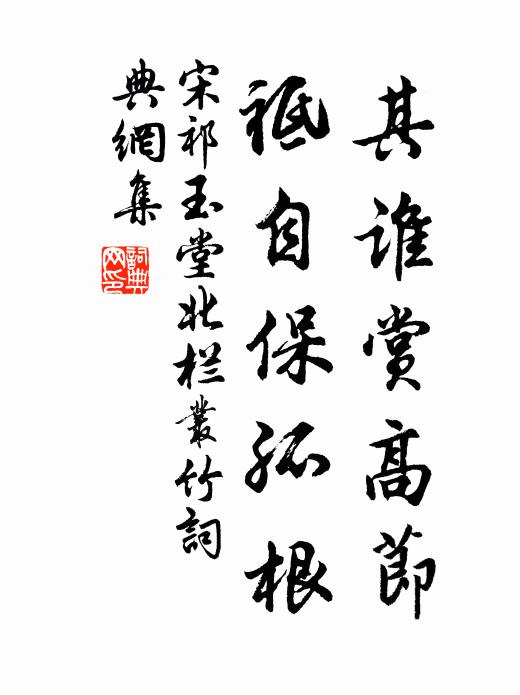 其誰賞高節
祗自保孤根
宋祁玉堂北栏叢竹詞
典網集
詞典
网印